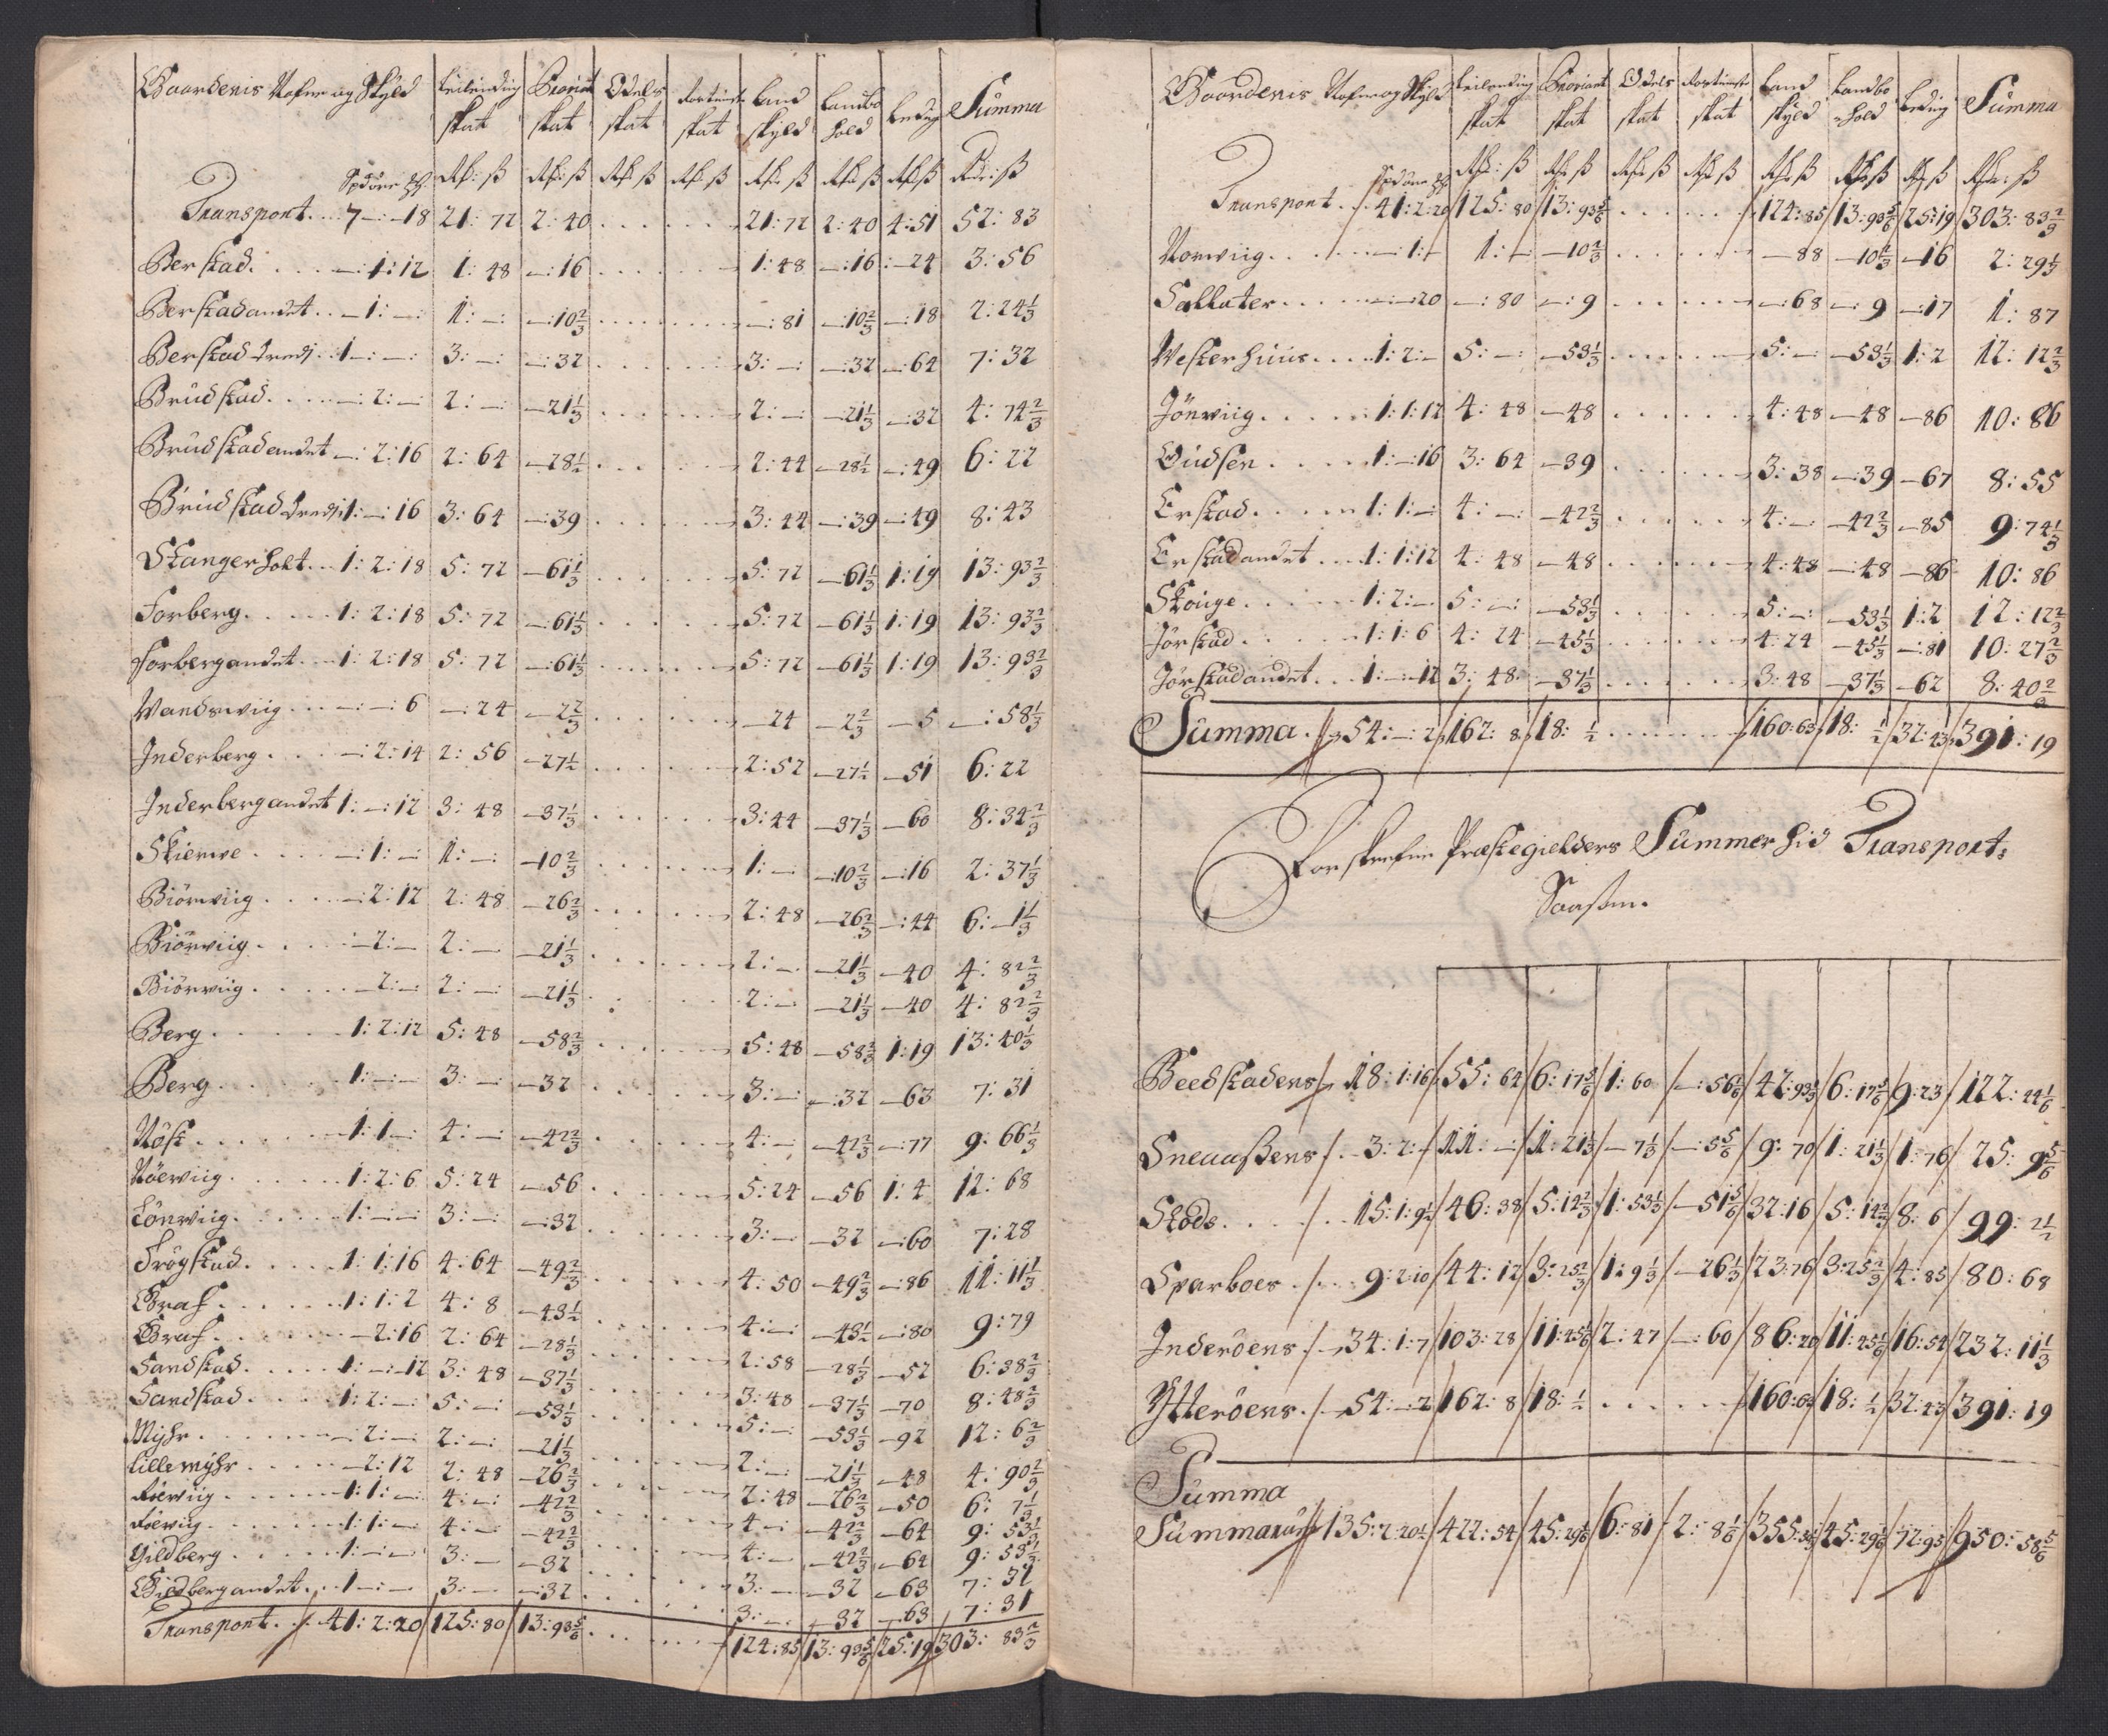 Gaardenis Nafne og Skyld Leilending skat Proviant skat Odels skat Rostienst skat Land skyld Landbo hold Leding Summa
Transport . . 7 — : 18 21 : 72 2 : 40 . . . . 21 : 72 2 : 40 4 : 51 52 : 83
Berstad . . . — : 1 : 12 1 : 48 — : 16 . . . . 1 : 48 — : 16 : — 24 3 : 56
Berstad andet . . — 1 : — : 1 : — : — : 10 2/3 . . . . — : 81 — : 10 2/3 — : 18 2 : 24 1/3
Berstad tredj . . 1 — : — : 3 : — : — : 32 . . . . 3 : — : — : 32 — : 64 7 : 32
Brudstad . . . — : 2 : — : 2 : — : — 21 1/3 . . . . 2 : — : — 21 1/3 — : 32 4 : 74 2/3
Brudstad andet — : 2 : 16 2 : 64 — 28 1/2 . . . . 2 : 44 — 28 1/2 — : 49 6 : 22
Brudstad tredj 1 : — : 16 3 : 64 — : 39 . . . . 3 : 44 — : 39 — : 49 8 : 43
Stangerholt . . 1 : 2 : 18 5 : 72 — 61 1/3 . . . . 5 : 72 — 61 1/3 1 : 19 13 : 93 2/3
Forberg . . . 1 : 2 : 18 5 : 72 — : 61 1/3 . . . . 5 : 72 — 61 1/3 1 : 19 13 : 93 2/3
Forberg andet . . 1 : 2 : 18 5 : 72 — : 61 1/3 . . . . 5 : 72 — 61 1/3 1 : 19 13 : 93 2/3
Wandswiig . . . — : — : 6 — : 24 — 2 2/3 . . . . — 24 — 2 2/3 — 5 — : 58 1/3
Inderberg . . . — : 2 : 14 2 : 56 — 27 1/2 . . . . 2 : 52 — 27 1/2 — 51 6 : 22
Inderberg andet 1 : — : 12 3 : 48 — 37 1/3 . . . . 3 : 44 — 37 1/3 — 60 8 : 34 2/3
Skierwe . . . — : 1 : — 1 : — : — 10 2/3 . . . . 1 : — — 10 2/3 — : 16 2 : 37 1/3
Biörwiig . . . — : 2 : 12 2 : 48 — 26 2/3 . . . . 2 : 48 — 26 2/3 — : 44 6 : — 1 1/3
Biörwiig . . . — 2 : — 2 : — — 21 1/3 . . . . 2 : — . — 21 1/3 — 40 4 : 82 2/3
Biörwiig . . . — 2 : — : 2 : — : — 21 1/3 . . . . 2 : — : — 21 1/3 — 40 4 : 82 2/3
Berg . . . 1 : 2 : 12 5 : 48 — 58 2/3 . . . . 5 : 48 — 58 2/3 1 : 19 13 : 40 1/3
Berg . . . 1 : — : — 3 : — : — 32 . . . . 3 : — : — : 32 — 63 7 : 31
Röst . . . 1 : 1 — : 4 : — : — 42 2/3 . . . . 4 : — : — 42 2/3 — : 77 9 : 66 1/3
Röewiig . . . 1 : 2 : 6 5 : 24 — 56 . . . . 5 : 24 — 56 1 : 4 12 : 68
Lönwiig . . . 1 : — : — : 3 : — : — : 32 . . . . 3 : — — 32 — : 60 7 : 28
Trögstad . . . 1 : 1 : 16 4 : 64 — 49 2/3 . . . . 4 : 50 — 49 2/3 — : 86 11 : 11 1/3
Graf . . . 1 : 1 : 2 4 : 8 — 43 1/2 . . . . 4 : — : — 43 1/2 — : 80 9 : 79
Graf . . . — 2 : 16 2 : 64 — 28 1/3 . . . . 2 : 58 — 28 1/3 — 52 6 : 38 2/3
Sandstad . . . 1 : — : 12 3 : 48 — 37 1/3 . . . . 3 : 48 — 37 1/3 — 70 8 : 48 2/3
Sandstad . . . 1 : 2 : — : 5 : — : — 53 1/3 . . . . 5 : — : — 53 1/3 — 92 12 : 6 2/3
Myhr . . . — : 2 : — : 2 : — : — 21 1/3 . . . . 2 : — : — 21 1/3 — 48 4 : 90 2/3
Lille myhr . . . — 2 : 12 2 : 48 — 26 2/3 . . . . 2 : 48 — 26 2/3 — 50 6 : 7 1/3
Röewiig . . . 1 : 1 : — : 4 : — : — 42 2/3 . . . . 4 — : — 42 2/3 — 64 9 : 53 1/3
Röewig . . . 1 : 1 : — : 4 : — : — 42 2/3 . . . . 4 : — — 42 2/3 — 64 9 : 53 1/3
Gildberg . . . 1 : — : — 3 : — — 32 . . . . 3 : — — 32 — 63 7 : 31
Gildberg andet . . 1 — : — 3 : — — : 32 . . . . 3 : — . 32 — 63 7 : 31
Transport . . 41 : 2 : 20 125 : 80 13 : 93 5/6 . . . . 124 : 85 13 : 93 5/6 25 : 19 303 : 83 2/3
Gaardenis Nafne og Skyld Leilending skat Proviant skat Odels skat Rostienst skat Land skyld Landbo hold Leding Summa
Transport . . 41 : 2 : 20 125 : 80 13 : 93 5/6 . . . . 124 : 85 13 : 93 5/6 25 : 19 303 : 83 2/3
Norwiig . . . — 1 : — 1 : — : — 10 2/3 . . . . — 88 — 10 2/3 — 16 2 : 29 1/3
Sallater . . . — : — : 20 — : 80 — : 9 . . . . — : 68 — : 9 — : 17 1 : 87
Westerhuus . . . 1 : 2 : — 5 : — : — 53 1/3 . . . . 5 : — : — 53 1/3 1 : 2 12 : 12 2/3
Jönwiig . . . 1 : 1 : 12 4 : 48 — 48 . . . . 4 : 48 — 48 — 86 10 : 86
Oudsen . . . 1 : — : 16 3 : 64 — 39 . . . . 3 : 38 — : 39 — 67 8 : 55
Erstad . . . 1 : 1 : — : 4 : — : — 42 2/3 . . . . 4 : — : — 42 2/3 — 85 9 : 74 1/3
Erstad andet . . . 1 : 1 : 12 4 : 48 — 48 . . . . 4 : 48 — : 48 — 86 10 : 86
Skouge . . . 1 : 2 : — 5 : — : — 53 1/3 . . . . 5 : — : — 53 1/3 1 : 2 12 : 12 2/3
Jörstad . . . 1 : 1 : 6 4 : 24 — 45 1/3 . . . . 4 : 24 — 45 1/3 — : 81 10 : 27 2/3
Jörstad andet . . . 1 : — : 12 3 : 48 — 37 1/3 . . . . 3 : 48 — 37 1/3 — 62 8 : 40 2/3
Summa . 54 : — : 2 162 : 8 18 : 1/2 . . . . 160 : 63 18 : 1/2 32 : 43 391 : 19
Forskrefne Præstegielders Summer hid Transport:
Saasom.
Beedstadens 18 : 1 : 16 55 : 64 6 : 17 5/6 1 : 60 — : 56 1/6 42 : 93 1/3 6 : 17 5/6 9 : 23 122 : 44 1/6
Sneuaßens . 3 : 2 : — 11 : — : 1 : 21 1/3 — 7 1/3 — : 5 5/6 9 : 70 1 : 21 1/3 1 : 76 25 : 9 5/6
Stods . . . 15 : 1 : 9 1/2 46 : 38 5 : 14 2/3 1 : 53 1/3 — 51 5/6 32 : 16 5 : 14 2/3 8 : 6 99 : 2 1/2
Sparboes . . 9 : 2 : 10 44 : 12 3 : 25 2/3 1 : 9 1/3 — 26 1/3 23 : 76 3 : 25 2/3 4 : 85 80 : 68
Inderöens . 34 : 1 : 7 103 : 28 11 : 45 1/6 2 : 47 — : 60 86 : 20 11 : 45 1/6 16 : 54 232 : 11 1/3
Ytteröens . 54 : — : 2 162 : 8 18 : 1/2 . . . . 160 : 63 18 : 1/2 32 : 43 391 : 19
Summa
Summarum 135 : 2 : 20 1/2 422 : 54 45 : 29 1/6 6 : 81 2 : 8 1/6 355 : 50 1/3 45 : 29 1/6 72 : 95 950 : 58 5/6